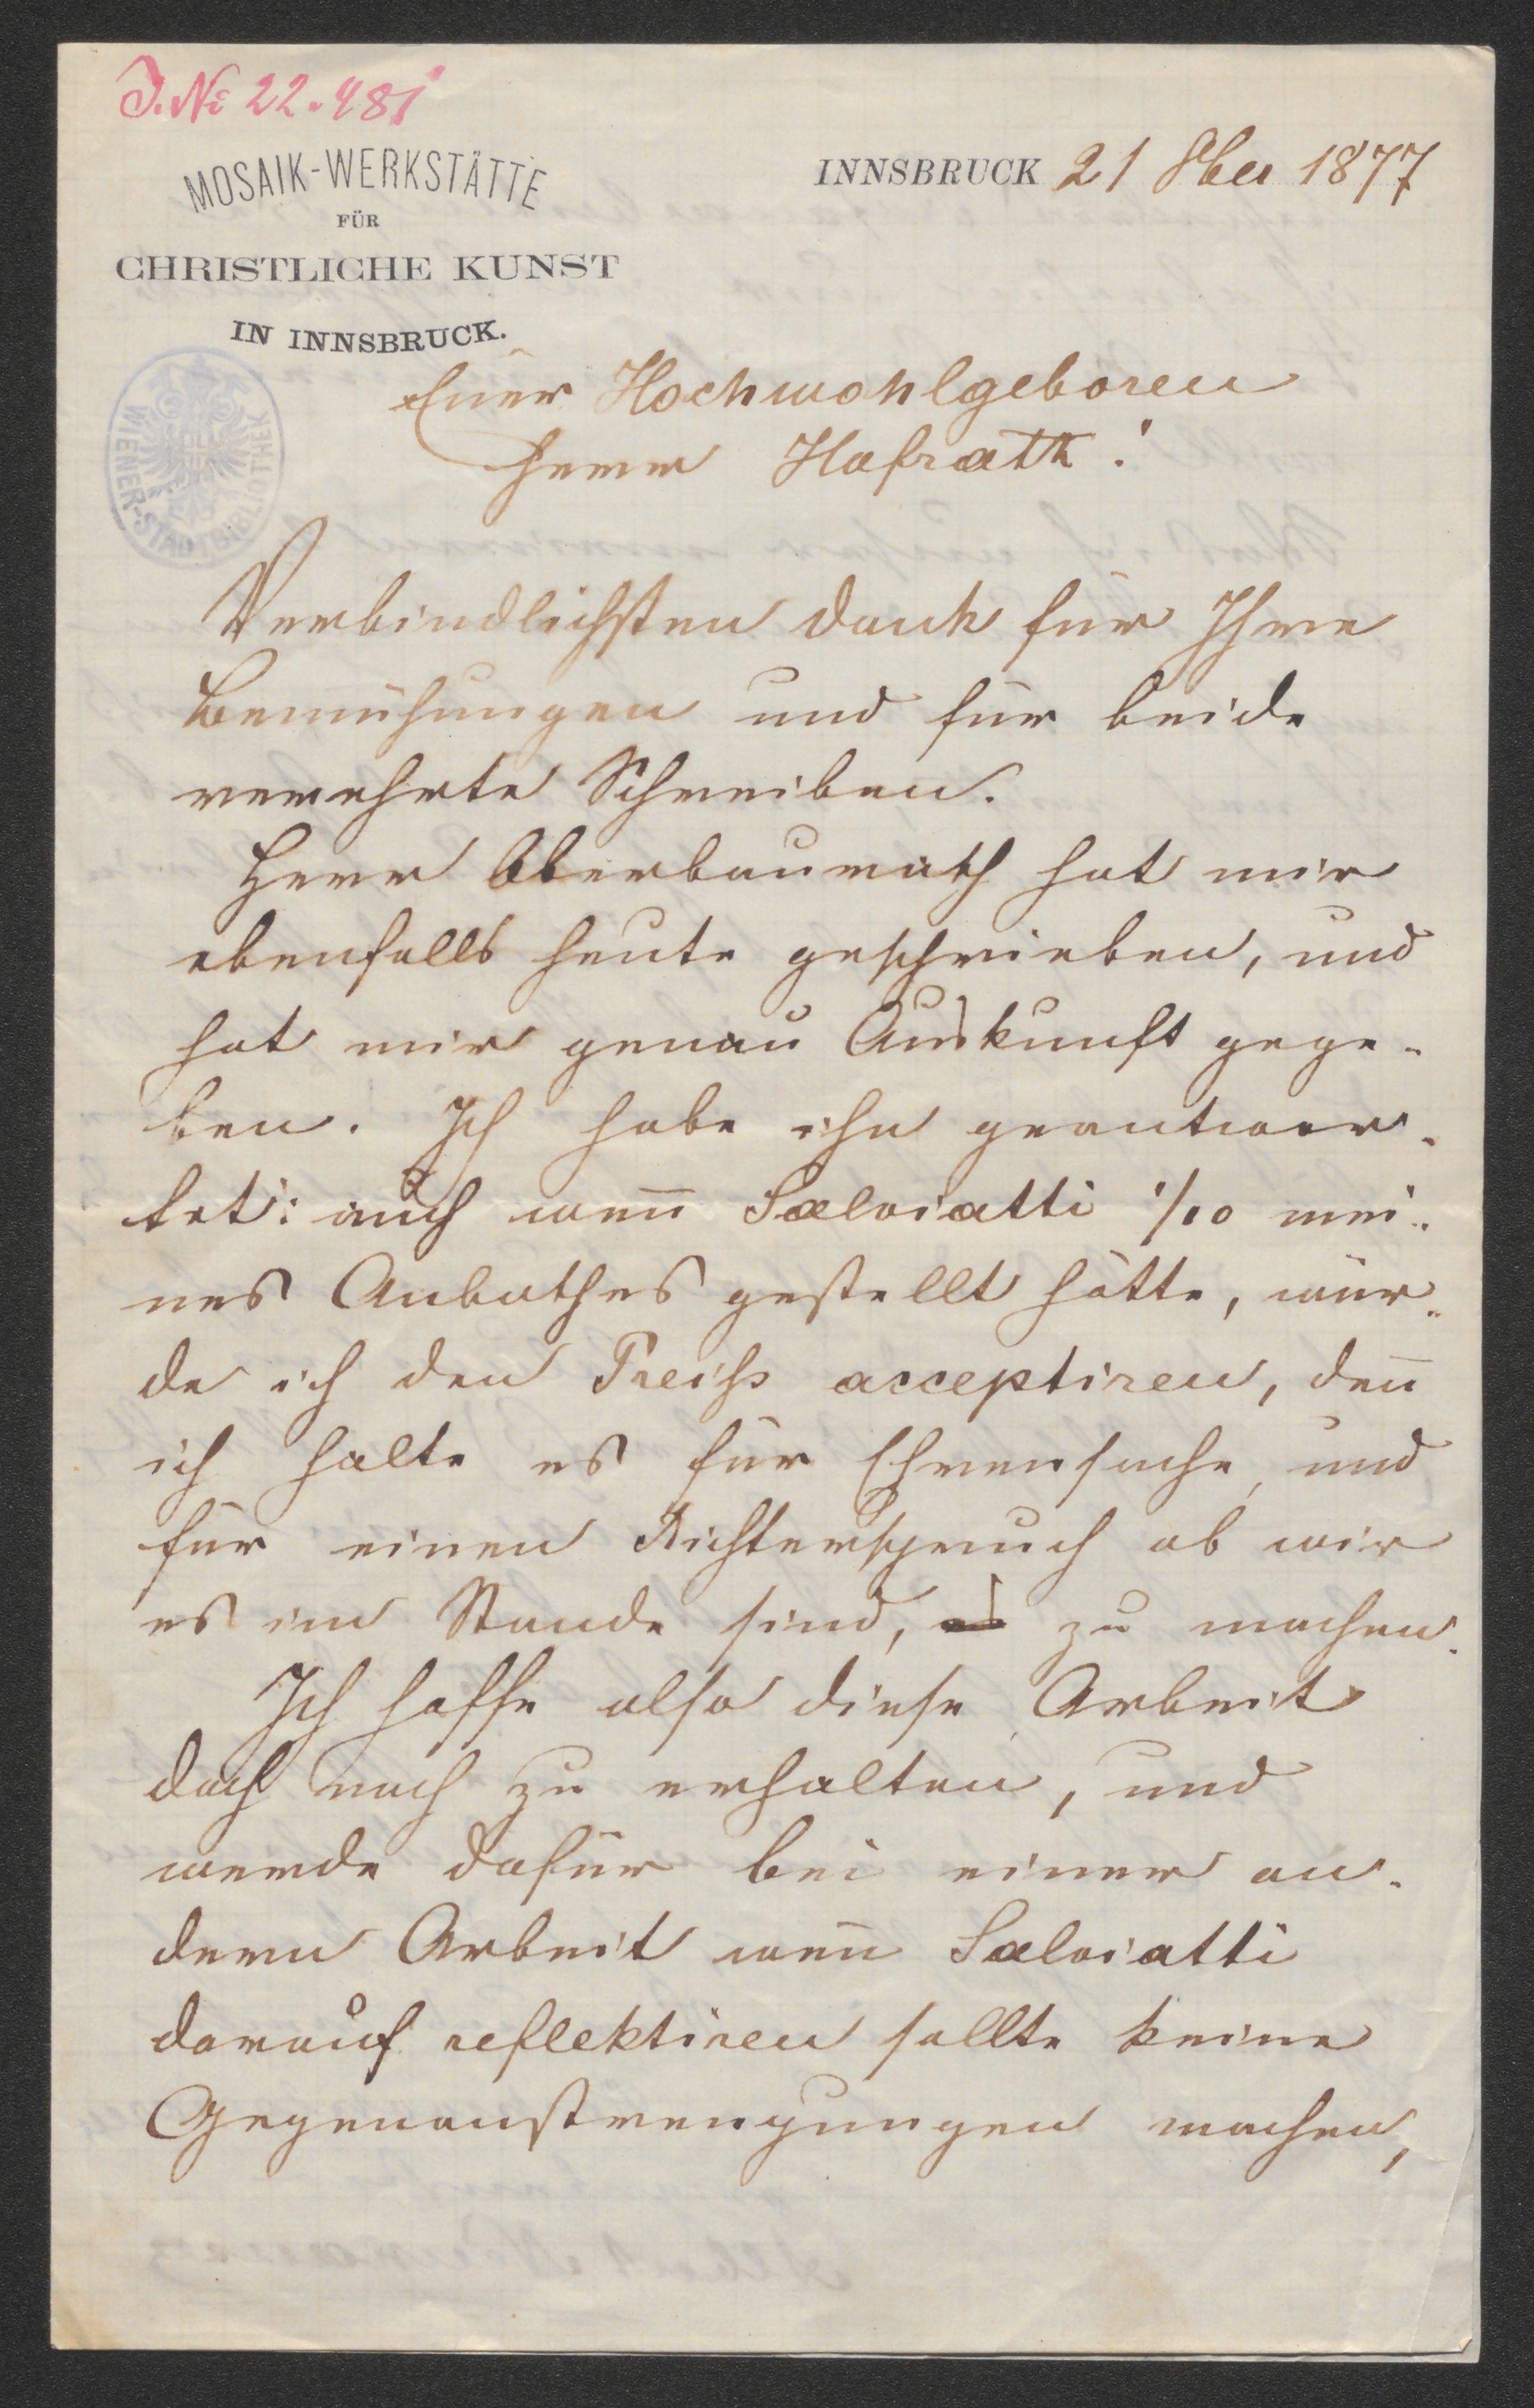 J. N: 22.481
MOSAIK-WERKSTÄTTE
FÜR
CHRISTLICHE KUNST
IN INNSBRUCK.
INNSBRUCK 21 8ber 1877
WIENER-STADTBIBLIOTHEK
Euer Hochwohlgeboren
Herrn Hofrath!
Verbindlichsten Dank für Ihre
Bemühungen und für beide
verehrte Schreiben.
Herr Oberbaurath hat mir
ebenfalls heute geschrieben, und
hat mir genau Auskunft gege-
ben. Ich habe ihn geantwor-
tet: auch wen̄ Salviatti 1/10 mei-
nes Anbothes gestellt hätte, wür-
de ich den Preiß acceptiren, den̄
ich halte es für Ehrensache, und
für einen Richterspruch ob wir
es im Stande sind, es zu machen.
Ich hoffe also diese Arbeit
doch noch zu erhalten, und
werde dafür bei einer an-
dern Arbeit wen̄ Salviatti
darauf reflektiren sollte keine
Gegenanstrengungen machen,